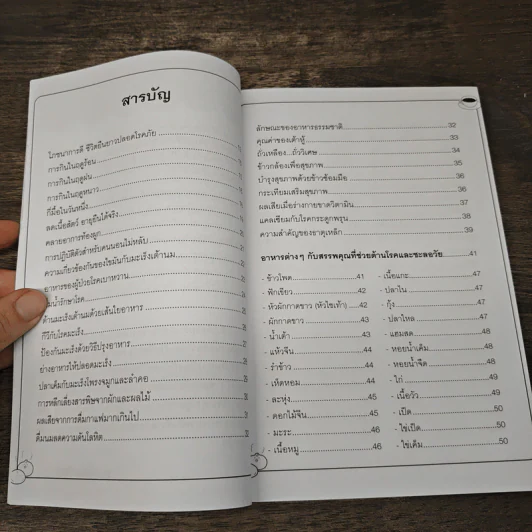 สารบัญ
โภชนาการดี ชีวิตยืนยาวปลอดโรคภัย
การกินในฤดูร้อน
การกินในฤดูฝน
การกินในฤดูหนาว
กี่มื้อในวันหนึ่ง
ลดเนื้อสัตว์ อายุยืนได้จริง
คลายอาการท้องผูก
การปฏิบัติตัวสำหรับคนนอนไม่หลับ
ความเกี่ยวข้องกันของไขมันกับมะเร็งเต้านม
อาหารของผู้ป่วยโรคเบาหวาน
ต้านมะเร็งเต้านมด้วยเส้นใยอาหาร
กีวีกับโรคมะเร็ง
ป้องกันมะเร็งด้วยวิธีปรุงอาหาร
ย่างอาหารให้ปลอดมะเร็ง
ปลาเค็มกับมะเร็งโพรงจมูกและลำคอ
การหลีกเลี่ยงสารพิษจากผักและผลไม้
ผลเสียจากการดื่มกาแฟมากเกินไป
ดื่มนมลดความดันโลหิต
ลักษณะของอาหารธรรมชาติ 32
คุณค่าของเต้าหู้ 33
ถั่วเหลือง...ถั่ววิเศษ 34
ข้าวกล้องเพื่อสุขภาพ 35
บำรุงสุขภาพด้วยข้าวซ้อมมือ 36
กระเทียมเสริมสุขภาพ 36
ผลเสียเมื่อร่างกายขาดวิตามิน 37
แคลเซียมกับโรคกระดูกพรุน 38
ความสำคัญของธาตุเหล็ก 39
อาหารต่างๆ กับสรรพคุณที่ช่วยต้านโรคและชะลอวัย 41
- ข้าวโพด 41
- ฟักเขียว 42
- หัวผักกาดขาว (หัวไชเท้า) 42
- ผักกาดขาว 43
- น้ำเต้า 43
- แห้วจีน 44
- รำข้าว 44
- เห็ดหอม 44
- ละหุ่ง 45
- ดอกไม้จีน 45
- มะระ 46
- เนื้อหมู 46
- เนื้อแกะ 47
- ปลาใน 47
- กุ้ง 47
- ปลาไหล 47
- แฮมสด 48
- หอยน้ำเค็ม 48
- หอยน้ำจืด 48
- ไก่ 49
- เนื้อวัว 49
- เป็ด 50
- ไข่เป็ด 50
- ไข่เค็ม 50